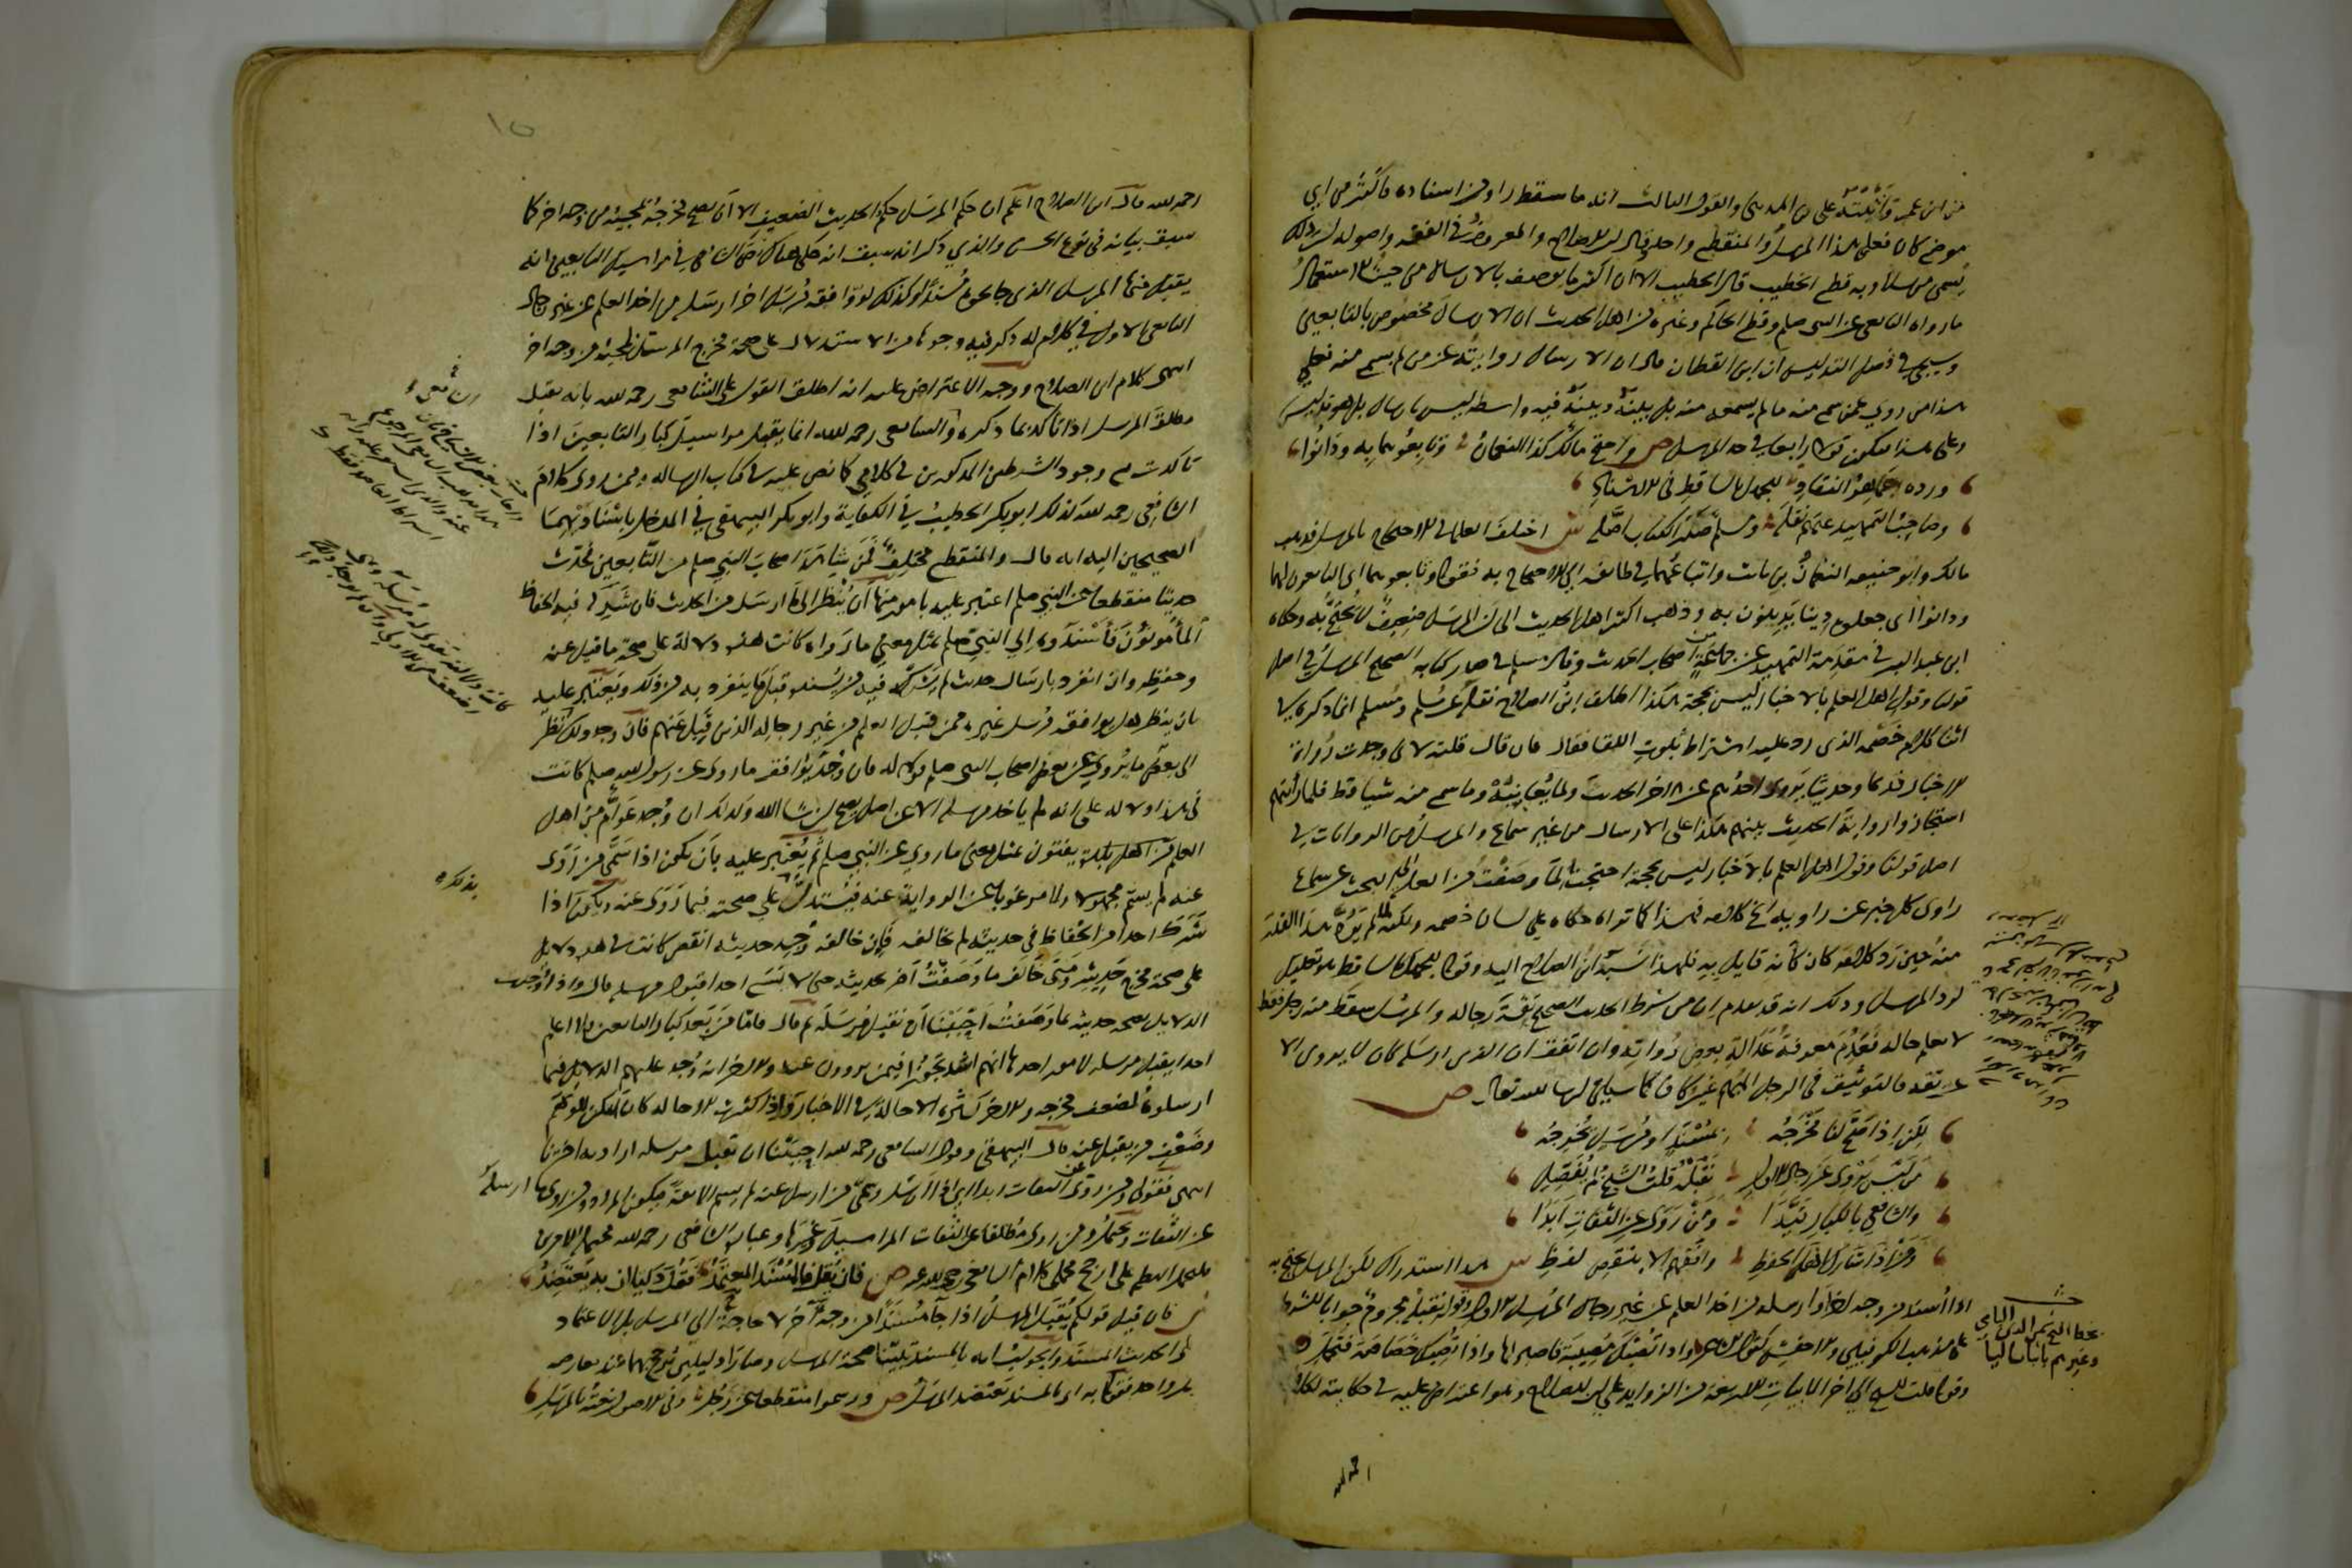 من ابن عمر واثبته على بن المديني والقول الثالث انه ما سقط راو من اسناده فاكثر من اي
موضع كان فعلى هذا المرسل والمنقطع واحد قال ابن الصلاح والمعروف في الفقه واصوله ان ذلك
يسمى مرسلا وبه قطع الخطيب قال الخطيب الا ان اكثر ما يوصف بالارسال من حيث الاستعمال
ما رواه التابعي عن النبي صلعم وقطع الحاكم وغيره من اهل الحديث ان الارسال مخصوص بالتابعين
وسيجي في فصل التدليس ان ابن القطان قال ان الارسال روايته عن من لم يسمع منه فعلى
هذا من روى عمن سمع منه ما لم يسمعه منه بل بينه وبينه فيه واسطة ليس بارسال بل هو تدليس
وعلى هذا فيكون قولا رابعا في حد المرسل ص واحتج مالك كذا النعمان وتابعوهما به ودانوا
ورده جماهر النقاد للجهل بالساقط في الاسناد
وصاحب التمهيد عنهم نقله ومسلم صدر الكتاب اصله ش اختلف العلما في الاحتجاج بالمرسل فذهب
مالك وابو حنيفة النعمان بن ثابت واتباعهما في طائفة الى الاحتجاج به فقوله وتابعوهما اي التابعون لهما
ودانوا اي جعلوه دينا يدينون به وذهب اكثر اهل الحديث الى ان المرسل ضعيف لا يحتج به وحكاه
ابن عبد البر في مقدمة التمهيد عن جماعة من اصحاب الحديث وقال مسلم في صدر كتابه الصحيح المرسل في اصل
قولنا وقول اهل العلم بالاخبار ليس بحجة هكذا اطلق ابن الصلاح نقله عن مسلم ومسلم انما ذكره في
اثنا كلام خصمه الذي رد عليه اشتراط ثبوت اللقا فقال فان قال قلته لاني وجدت رواة
الاخبار قديما وحديثا يروي احدهم عن الاخر الحديث ولما يعاينه وما سمع منه شيا قط فلما رأيتهم
استجازوا رواية الحديث بينهم هكذا على الارسال من غير سماع والمرسل من الروايات في
اصل قولنا وقول اهل العلم بالاخبار ليس بحجة احتجت لما وصفت من العلة الى البحث عن سماع
راوي كل خبر عن راويه الى اخر كلامه فهذا كما تراه حكاه على لسان خصمه ولكنه لما لم يرد هذا القدر
منه حين رد كلامه كان كأنه قايل به فلهذا نسبه ابن الصلاح اليه وقوله للجهل بالساقط هو تعليل
لرد المرسل وذلك انه قد تقدم ان من شرط الحديث الصحيح ثقة رجاله والمرسل سقط منه رجل فقط
لا نعلم حاله فعدم معرفة عدالة بعض رواته وان اتفق ان الذي ارسله كان لا يروي الا
عن ثقة فالتوثيق في الرجل المبهم غير كاف كما سياتي ان شا الله تعالى ص
لكن اذا صح لنا مخرجه بمسند او مرسل يخرجه
من ليس يروي عن رجال الاول نقبله قلت الشيخ لم يفصل
والشافعي بالكبار قيدا ومن روى عن الثقات ابدا
ومن اذا شارك اهل الحفظ وافقهم الا بنقص لفظ ش هذا استدراك لكن المرسل يحتج به
اذا اسند من وجه اخر او ارسله من اخذ العلم عن غير رجال المرسل الاول وقوله نقبله مجزوم جوابا للشرط
على مذهب الكوفيين والاخفش كقول الشاعر واذا تصبك مصيبة فاصبر لها واذا تصبك خصاصة فتجمل
وقوله قلت الشيخ الى اخر الابيات الاربعة من الزوايد على ابن الصلاح وهو اعتراض عليه في حكايته لكلام
رحمه الله قال ابن الصلاح اعلم ان حكم المرسل حكم الحديث الضعيف الا ان يصح مخرجه بمجيئه من وجه اخر كما
سبق بيانه في نوع الحسن والذي ذكر انه سبق انه حكى هناك نص الشافعي في مراسيل التابعين انه
يقبل منها المرسل الذي جا نحوه مسندا وكذلك لو وافقه مرسل اخر ارسله من اخذ العلم عن غير رجال
التابعي الاول في كلام له ذكر فيه وجوها من الاستدلال على صحة مخرج المرسل بمجيئه من وجه اخر
انتهى كلام ابن الصلاح ووجه الاعتراض عليه انه اطلق القول على الشافعي رحمه الله بانه يقبل
مطلق المرسل اذا تاكد بما ذكره والشافعي رحمه الله انما يقبل مراسيل كبار التابعين اذا
تاكدت مع وجود الشرطين المذكورين في كلامي كما نص عليه في كتاب الرسالة وممن روى كلام
الشافعي رحمه الله كذلك ابو بكر الخطيب في الكفاية وابو بكر البيهقي في المدخل باسناديهما
الصحيحين اليه انه قال والمنقطع مختلف فمن شاهد اصحاب النبي صلعم من التابعين فحدث
حديثا منقطعا عن النبي صلعم اعتبر عليه بامور منها ان ينظر الى ما ارسل من الحديث فان شركه فيه الحفاظ
المأمونون فاسندوه الى النبي صلعم بمثل معنى ما رواه كانت هذه دلالة على صحة ما قبل عنه
وحفظه وان انفرد بارسال حديث لم يشركه فيه من يسنده قبل ما ينفرد به من ذلك ويعتبر عليه
بان ينظر هل يوافقه مرسل غيره ممن قبل العلم من غير رجاله الذين قبل عنهم فان وجد ذلك نظر
الى بعض ما يروى عن بعض اصحاب النبي صلعم قولا له فان وجد يوافق ما روى عن رسول الله صلعم كانت
في هذا دلالة على انه لم ياخذ مرسله الا عن اصل يصح ان شا الله وكذلك ان وجد عوام من اهل
العلم يفتون بمثل معنى ما روى عن النبي صلعم ثم يعتبر عليه بان يكون اذا سمى من روى
عنه لم يسم مجهولا ولا مرغوبا عن الرواية عنه فيستدل على صحته فيما روى عنه ويكون اذا
شرك احدا من الحفاظ في حديثه لم يخالفه فان خالفه وجد حديثه انقص كانت في هذه دلايل
على صحة مخرج حديثه ومتى خالف ما وصفت اضر بحديثه حتى لا يسع احدا قبول مرسله قال واذا وجدت
الدلايل بصحة حديثه بما وصفت احببنا ان نقبل مرسله ثم قال فاما من بعد كبار التابعين فلا اعلم
احدا يقبل مرسله لامور احدها انهم اشد تجوزا فيمن يروون عنه والاخر انه وجد عليهم الدلايل فيما
ارسلوه لضعف مخرجه والاخر كثرة الاحالة في الاخبار واذا كثرت الاحالة كان امكن للوهم
وضعف من يقبل عنه قال البيهقي وقول الشافعي رحمه الله احببنا ان نقبل مرسله اراد به اخترنا
انتهى فقولي ومن روى عن الثقات ابدا اي اذا ارسل وسمى من ارسل عنه لم يسم الا ثقة فيكون المراد ومن روى ما ارسله
عن الثقات ويحتمل ومن روى مطلقا عن الثقات المراسيل وغيرها وعبارة الشافعي رحمه الله محتملة الامرين
فليحمل النظم على ارجح محملي كلام الشافعي رحمه الله ص فان يقل فالمسند المعتمد فقل دليلان به يعتضد
ش فان قيل قولكم يقبل المرسل اذا جا مسندا من وجه آخر لا حاجة الى المرسل بل الاعتماد
على الحديث المسند والجواب انه بالمسند تبينا صحة المرسل وصارا دليلين يرجح بهما عند معارضة
دليل واحد فقوله به اي بالمسند يعتضد المرسل ص ورسموا منقطعا عن رجل وفي الاصول نعته بالمرسل